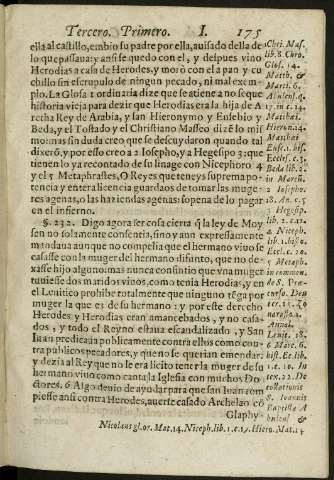 Tercero. Primero. I. 175
ella al castillo, embio su padre por ella, auisado della de
lo que passaua: y ansi se quedo con el, y despues vino
Herodias a casa de Herodes, y moró con el a pan y cu
chillo sin escrupulo de ningun pecado, ni mal exem-
plo. La Glosa 1 ordinaria dize que se atiene a no se que
historia vieja para dezir que Herodias era la hija de A
recha Rey de Arabia, y san Hieronymo y Eusebio y
Beda, y el Tostado y el Christiano Masseo dizē lo mis
mo: mas sin duda creo que se descuydaron quando tal
dixerō, y por esso creo a 2 Iosepho, y a Hegesipo 3: que
tienen lo ya recontado de su linage con Nicephoro 4
y el 5 Metaphrastes, O Reyes que teneys suprema po-
tencia y entera licencia guardaos de tomar las muge-
res agenas, o las haziendas agenas: sopena de lo pagar
en el infierno.
§. 232. Digo agora ser cosa cierta q̃ la ley de Moy
sen no solamente consentia, sino y aun expressamente
mandaua aunque no compelia que el hermano viuo se
casasse con la muger del hermano difunto, que no de-
xasse hijo alguno: mas nunca consintio que vna muger
tuuiesse dos maridos viuos, como tenia Herodias, y en
el Leuitico prohibe totalmente que ninguno tēga por
muger la que es de su hermano: y por este derecho
Herodes y Herodias eran amancebados, y no casa-
dos, y todo el Reyno estaua escandalizado, y San
Iuan predicaua publicamente contra ellos como con-
tra publicos pecadores, y que no se querian emendar:
y dezia al Rey que no le era licito tener la muger de su
hermano viuo como canta la Iglesia con muchos Do
ctores. 6 Algo deuio de ayudar para que san Iuan rom
piesse ansi contra Herodes, auerse casado Archelao cō
Glaphy-
Chri. Mas.
lib. 8. Chro.
Glos. 14.
Matth. &
Marci. 6.
Abulens. q.
17. in c. 14.
Matthæi.
Hieron. 14.
Matthæi
Euse. 1. his.
Eccles. c. 3.
Beda lib. 2.
in Marcū.
2 Iosepho.
18. An. c. 5
3 Hegesip.
lib. 2. c. 12.
4 Niceph.
lib. 1. histo.
Eccl. c. 20.
5 Metaph.
in commen.
de S. Præ-
Annal.
Leuit. 18.
6 Marc. 6.
hist. Ec. lib.
1. c. 10. In
S. Ioannis
Baptistæ A
Nicolaus gl. or. Mat. 14. Niceph. lib. 1. c. 19. Hiero. Mat. 14